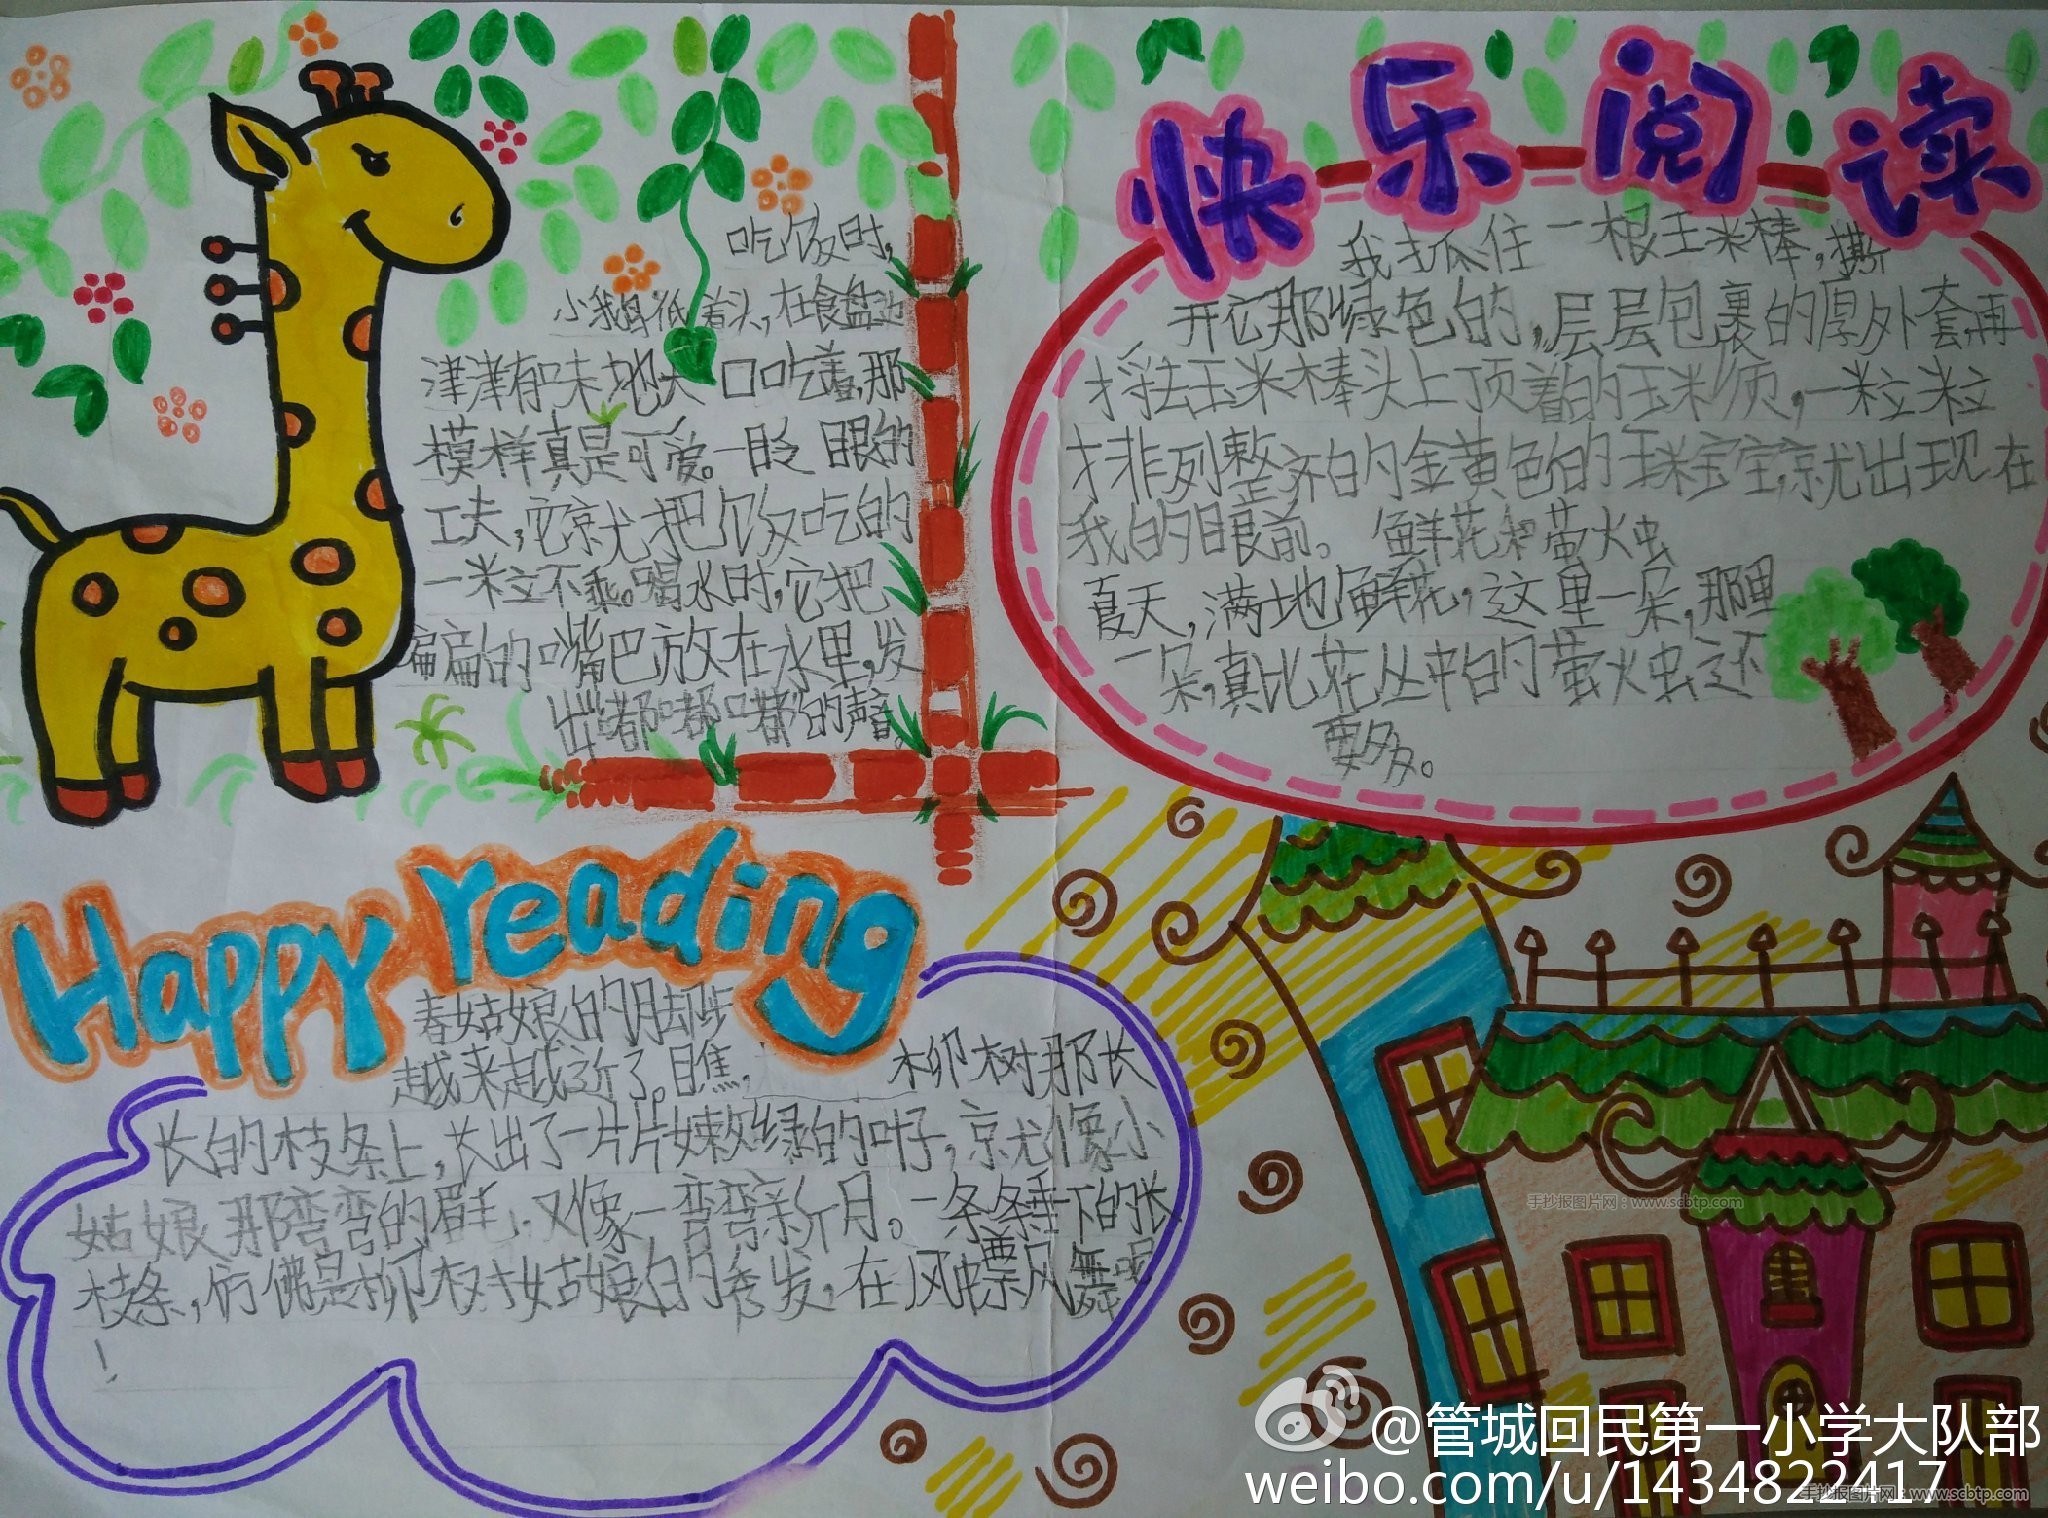 快乐阅读
吃饭时,
小我鸟低着头,在食盘边
津津有味地大口吃着,那
模样真是可爱。一眨眼的
工夫,它就把饭吃的
一粒不乘。喝水时,它把
扁扁的嘴巴放在水里,发
出嘟嘟嘟的声音,
我抓住一根玉米棒,撕
开它那绿色的,层层包裹的厚外套,再
捋去玉米棒头上顶着的玉米须,一粒粒
排列整齐的金黄色的玉米宝宝就出现在
我的眼前。 鲜花和萤火虫
夏天,满地鲜花,这里一朵,那里
一朵,真比花丛中的萤火虫还
要多。
Happy reading
春姑娘的脚步
越来越近了。瞧, 柳树那长
长的枝条上,长出了一片片嫩绿的叶子,就像小
姑娘那弯弯的眉毛,又像一弯弯新月。一条条垂下的长
枝条,仿佛是柳树姑娘的秀发,在风中飘舞呢
!
手抄报图片网:www.scbtp.com
@管城回民第一小学大队部
weibo.com/u/1434822417
手抄报图片网:www.scbtp.com